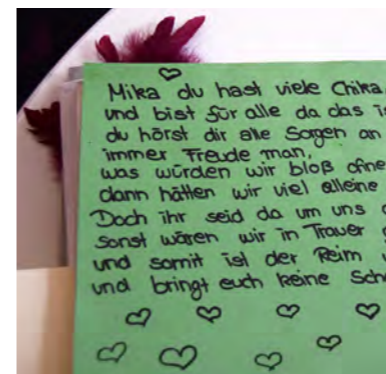 Mika du hast viele Chika,
und bist für alle da das is
du hörst dir alle Sorgen an
immer Freude man,
was würden wir bloß ohne
dann hätten wir viel alleine
Doch ihr seid da um uns
sonst wären wir in Trauer
und somit ist der Reim
und bringt euch keine Sch